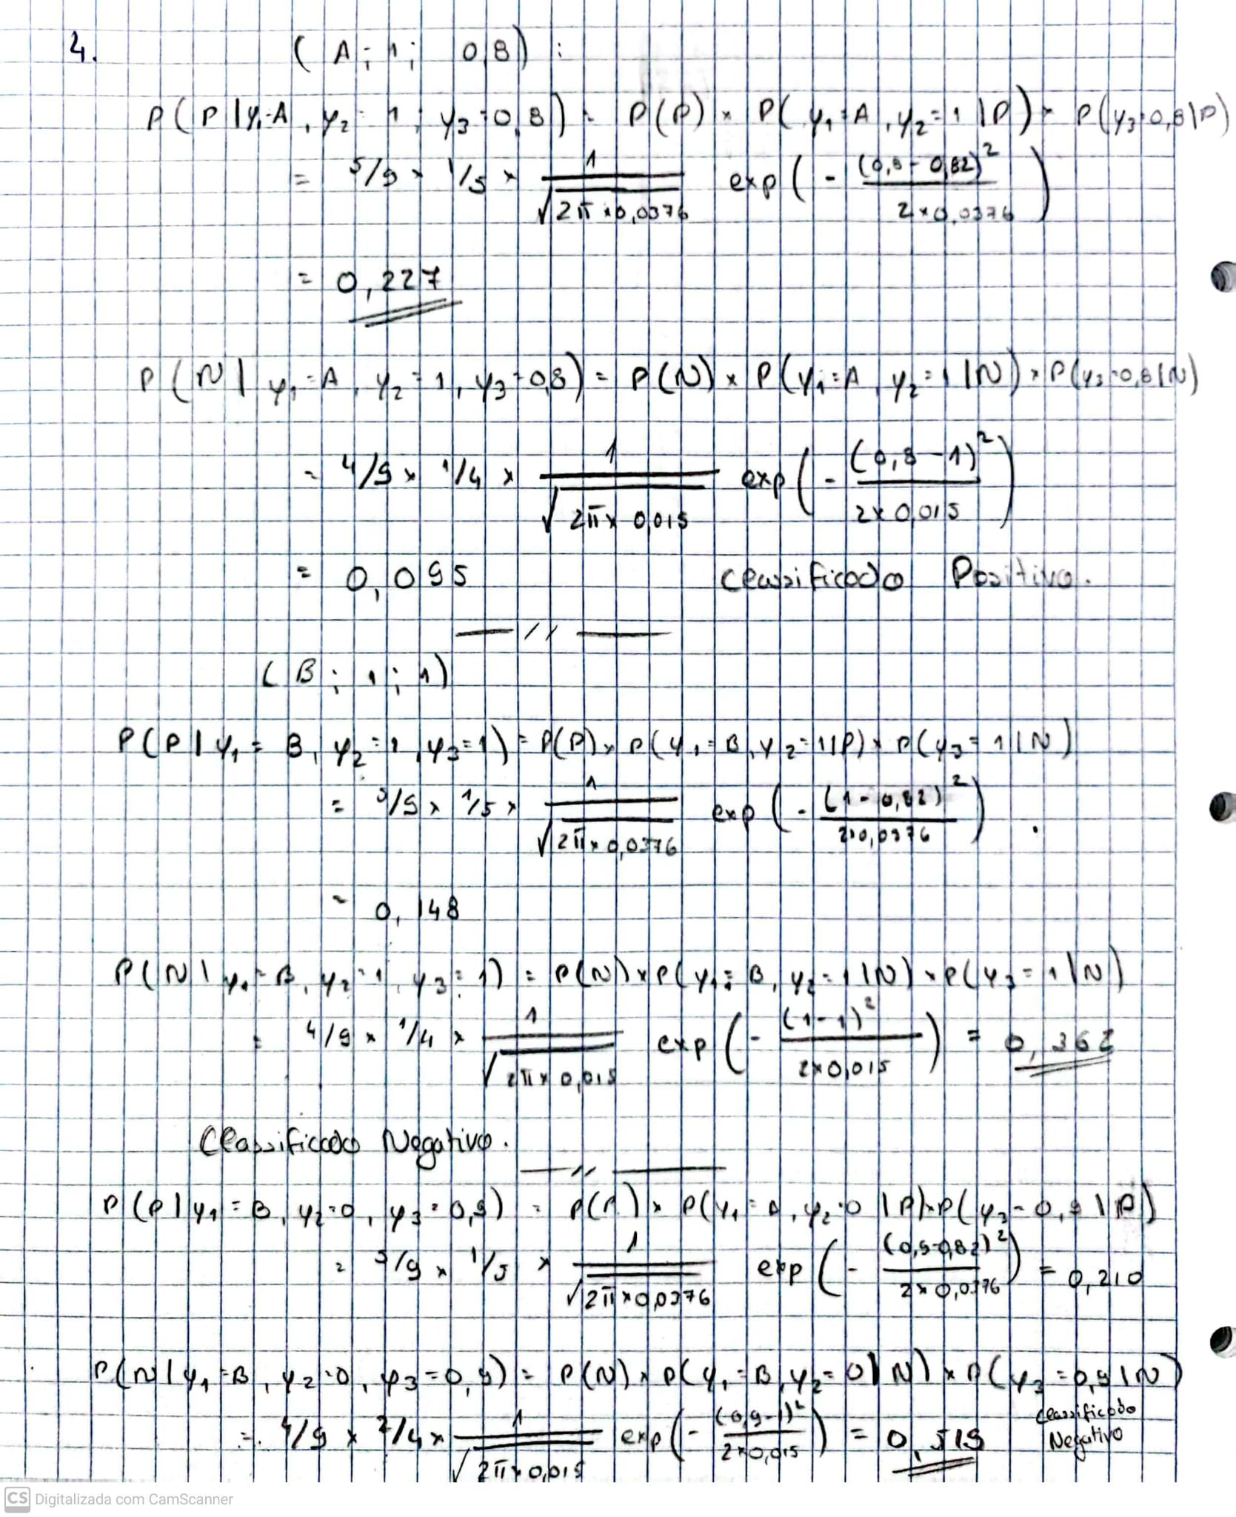 4. (A; 1; 0,8) :
P(P|y₁=A, y₂=1, y₃=0,8) = P(P) × P(y₁=A, y₂=1|P) × P(y₃=0,8|P)
= 5/9 × 1/5 × 1/√(2π×0,0376) exp(-(0,8-0,82)²/(2×0,0376))
= 0,227
P(N|y₁=A, y₂=1, y₃=0,8) = P(N) × P(y₁=A, y₂=1|N) × P(y₃=0,8|N)
= 4/9 × 1/4 × 1/√(2π×0,015) exp(-(0,8-1)²/(2×0,015))
= 0,095 Classificado Positivo.
— // —
(B; 1; 1)
P(P|y₁=B, y₂=1, y₃=1) = P(P) × P(y₁=B, y₂=1|P) × P(y₃=1|N)
= 5/9 × 1/5 × 1/√(2π×0,0376) exp(-(1-0,82)²/(2×0,0376)) .
= 0,148
P(N|y₁=B, y₂=1, y₃=1) = P(N) × P(y₁=B, y₂=1|N) × P(y₃=1|N)
= 4/9 × 1/4 × 1/√(2π×0,015) exp(-(1-1)²/(2×0,015)) = 0,362
Classificado Negativo.
— // —
P(P|y₁=B, y₂=0, y₃=0,9) = P(P) × P(y₁= , y₂=0|P) × P(y₃=0,9|P)
= 5/9 × 1/5 × 1/√(2π×0,0376) exp(-(0,9-0,82)²/(2×0,0376)) = 0,210
P(N|y₁=B, y₂=0, y₃=0,9) = P(N) × P(y₁=B, y₂=0|N) × P(y₃=0,9|N)
= 4/9 × 2/4 × 1/√(2π×0,015) exp(-(0,9-1)²/(2×0,015)) = 0,519 Classificado Negativo
CS Digitalizada com CamScanner